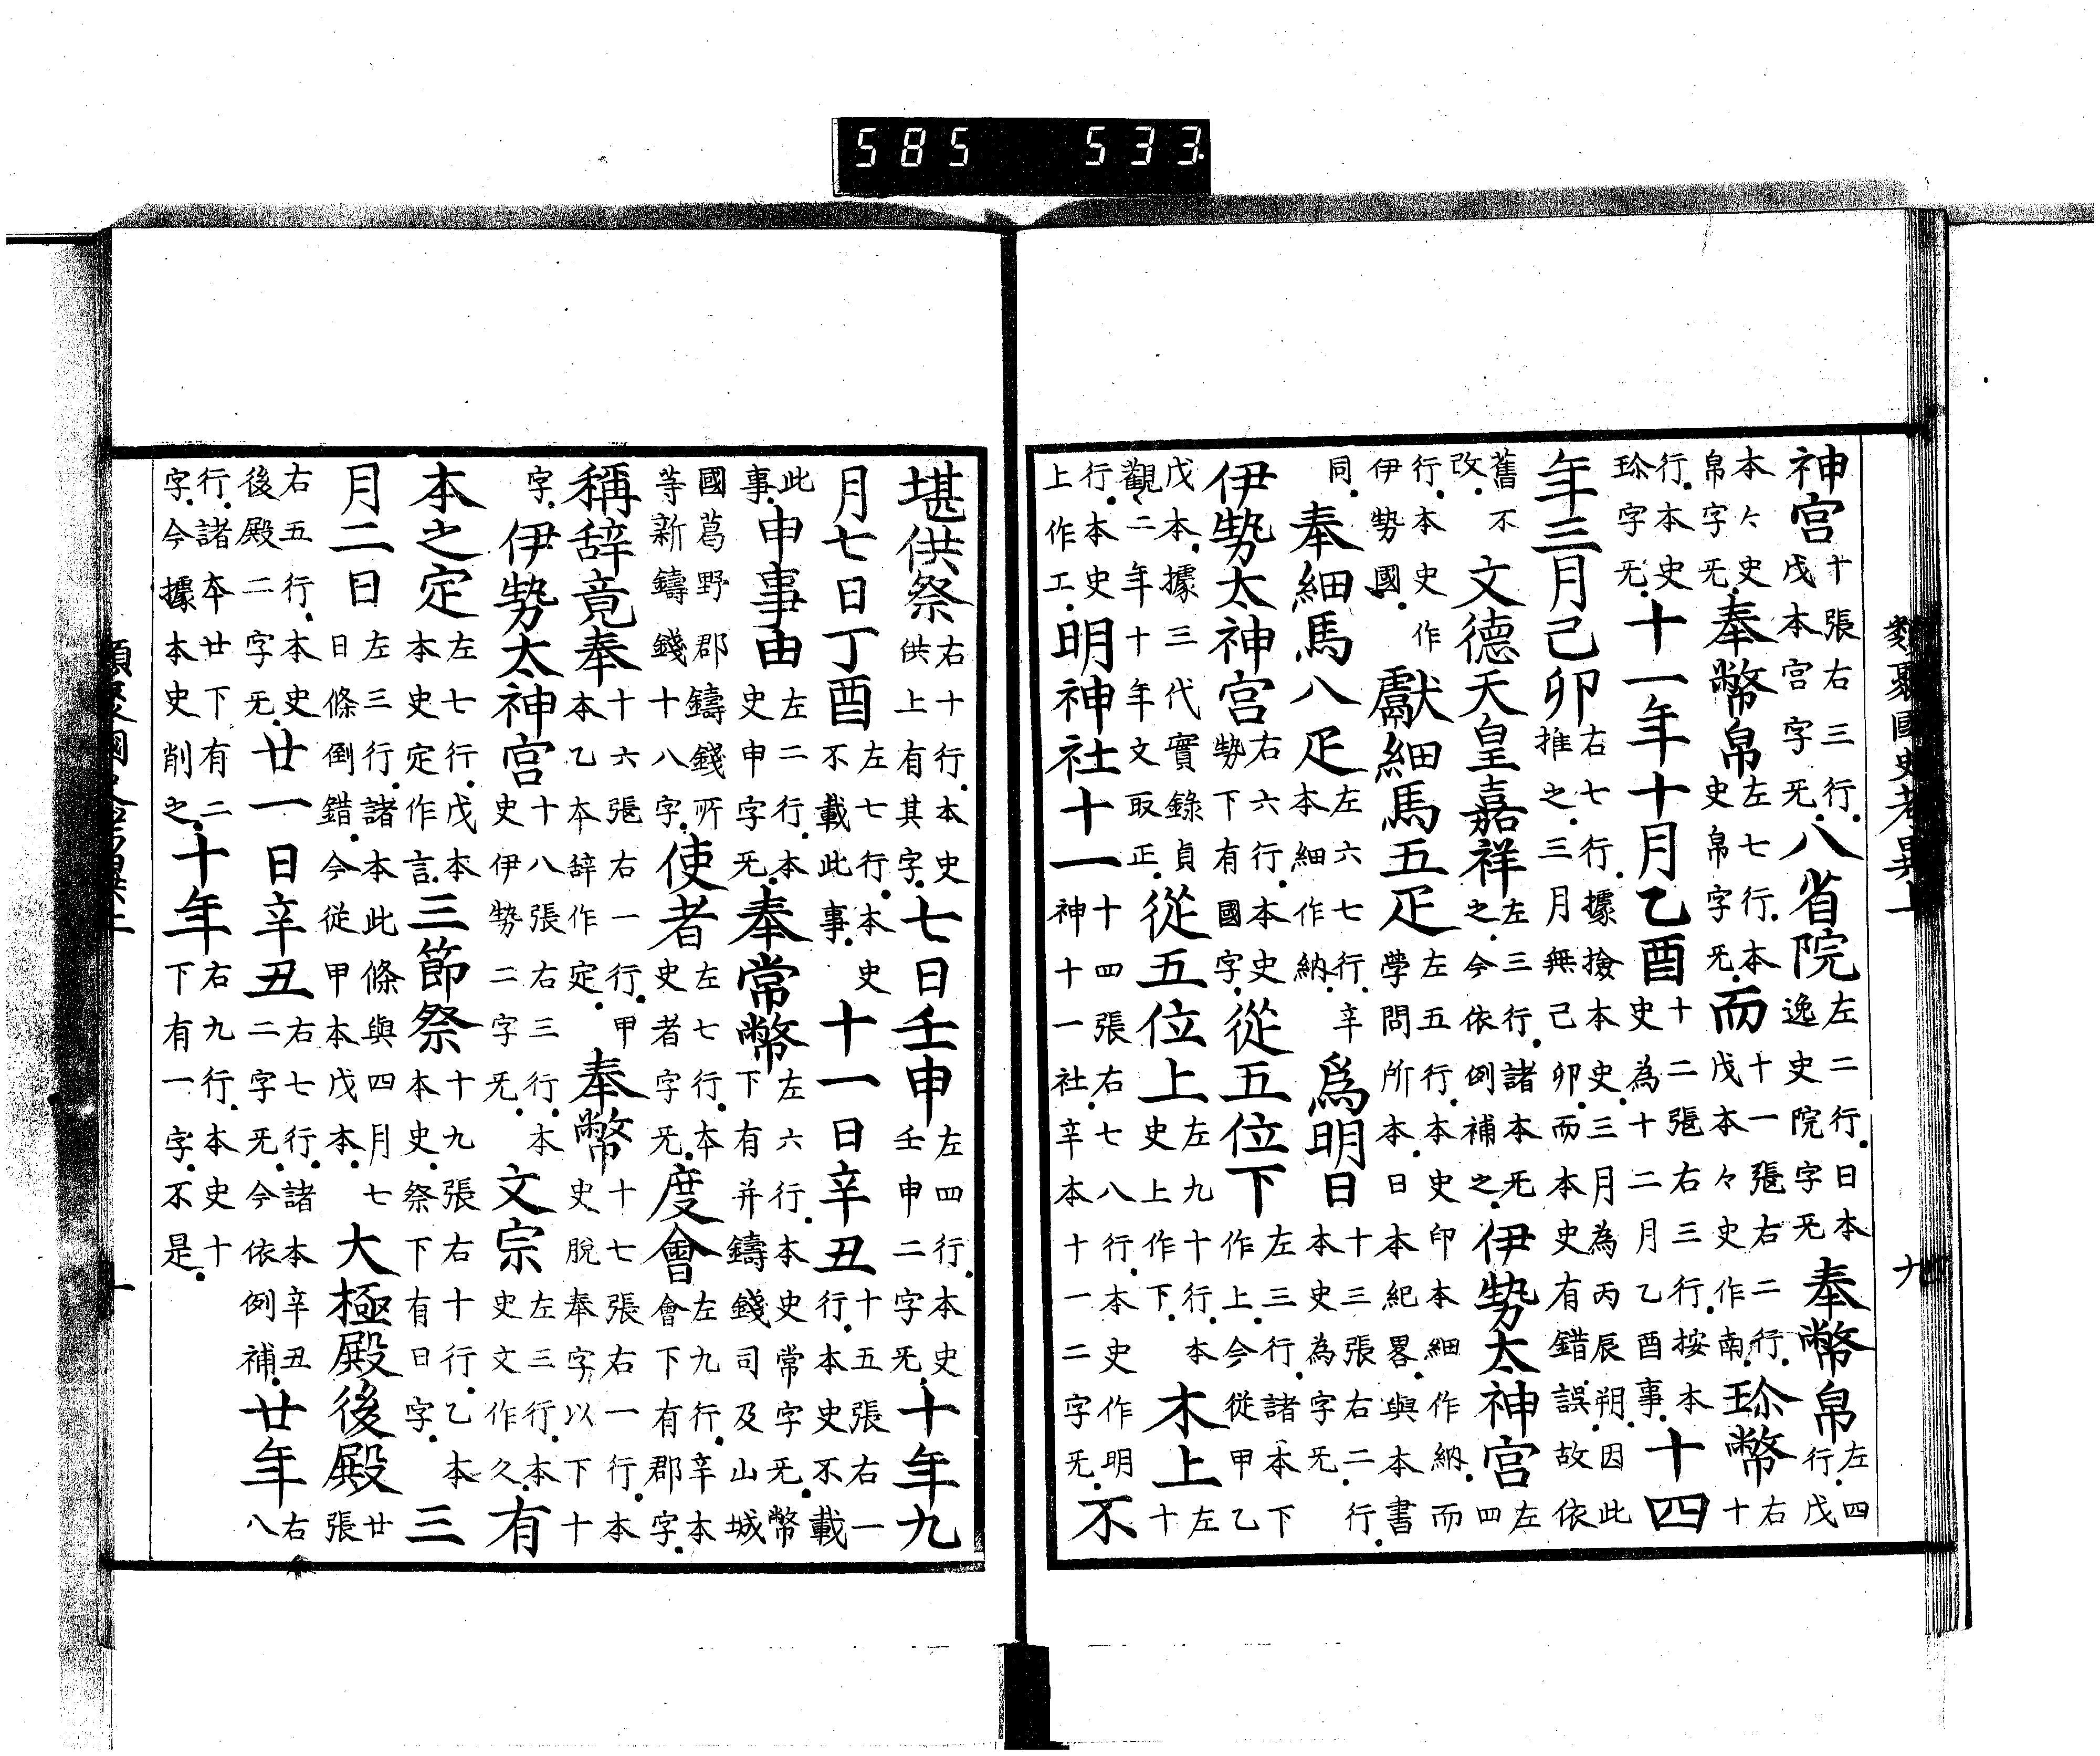 類聚國史考異上
九
神宮十張右三行。戊本宮字无。八省院左二行。日本逸史院字无奉幣帛左四行。戊
本々史帛字无。奉幣帛左七行。本史帛字无。而十一張右二行。戊本々史作南。珎幣右十
行。本史珎字无。十一年十月乙酉十二張右三行。按本史為十二月乙酉事。十四
年三月己卯右七行。據撿本史。三月為丙辰朔。因此推之。三月無己卯。而本史有錯誤。故依
舊不改。文德天皇嘉祥左三行。諸本无之。今依例補之。伊勢太神宮左四
行。本史作伊勢國。獻細馬五疋左五行。本史印本細作納。而学問所本。日本紀畧。與本書
同。奉細馬八疋左六七行。辛本細作納。爲明日十三張右二行。本史為字无。
伊勢太神宮右六行。本史勢下有國字。從五位下左三行。諸本下作上。今従甲乙
戊本。據三代實錄貞觀二年十年文取正。從五位上左九十行。本史上作下。木上左十
行。本史上作工。明神社十一十四張右七八行。本史作明神十一社。辛本十一二字无。不
堪供祭右十行。本史供上有其字。七日壬申左四行。本史壬申二字无。十年九
月七日丁酉左七行。本史不載此事。十一日辛丑十五張右一行。本史不載
此事。申事由左二行。本史申字无。奉常幣左六行。本史常字无。幣下有并鑄錢司及山城
國葛野郡鑄錢所等新鑄錢十八字。使者左七行。本史者字无。度會左九行。辛本會下有郡字。
稱辞竟奉十六張右一行。甲本乙本辞作定。奉幣十七張右一行。本史脫奉字以下十
字。伊勢太神宮十八張右三行。本史伊勢二字无。文宗左三行。本史文作久。有
本之定左七行。戊本本史定作言。三節祭十九張右十行。乙本本史。祭下有日字。三
月二日左三行。諸本此條與四月七日條倒錯。今従甲本戊本。大極殿後殿廿張
右五行。本史後殿二字无。廿一日辛丑右七行。諸本辛丑二字无。今依例補。廿年右八
行。諸本廿下有二字。今據本史削之。十年右九行。本史十下有一字。不是。
585 533